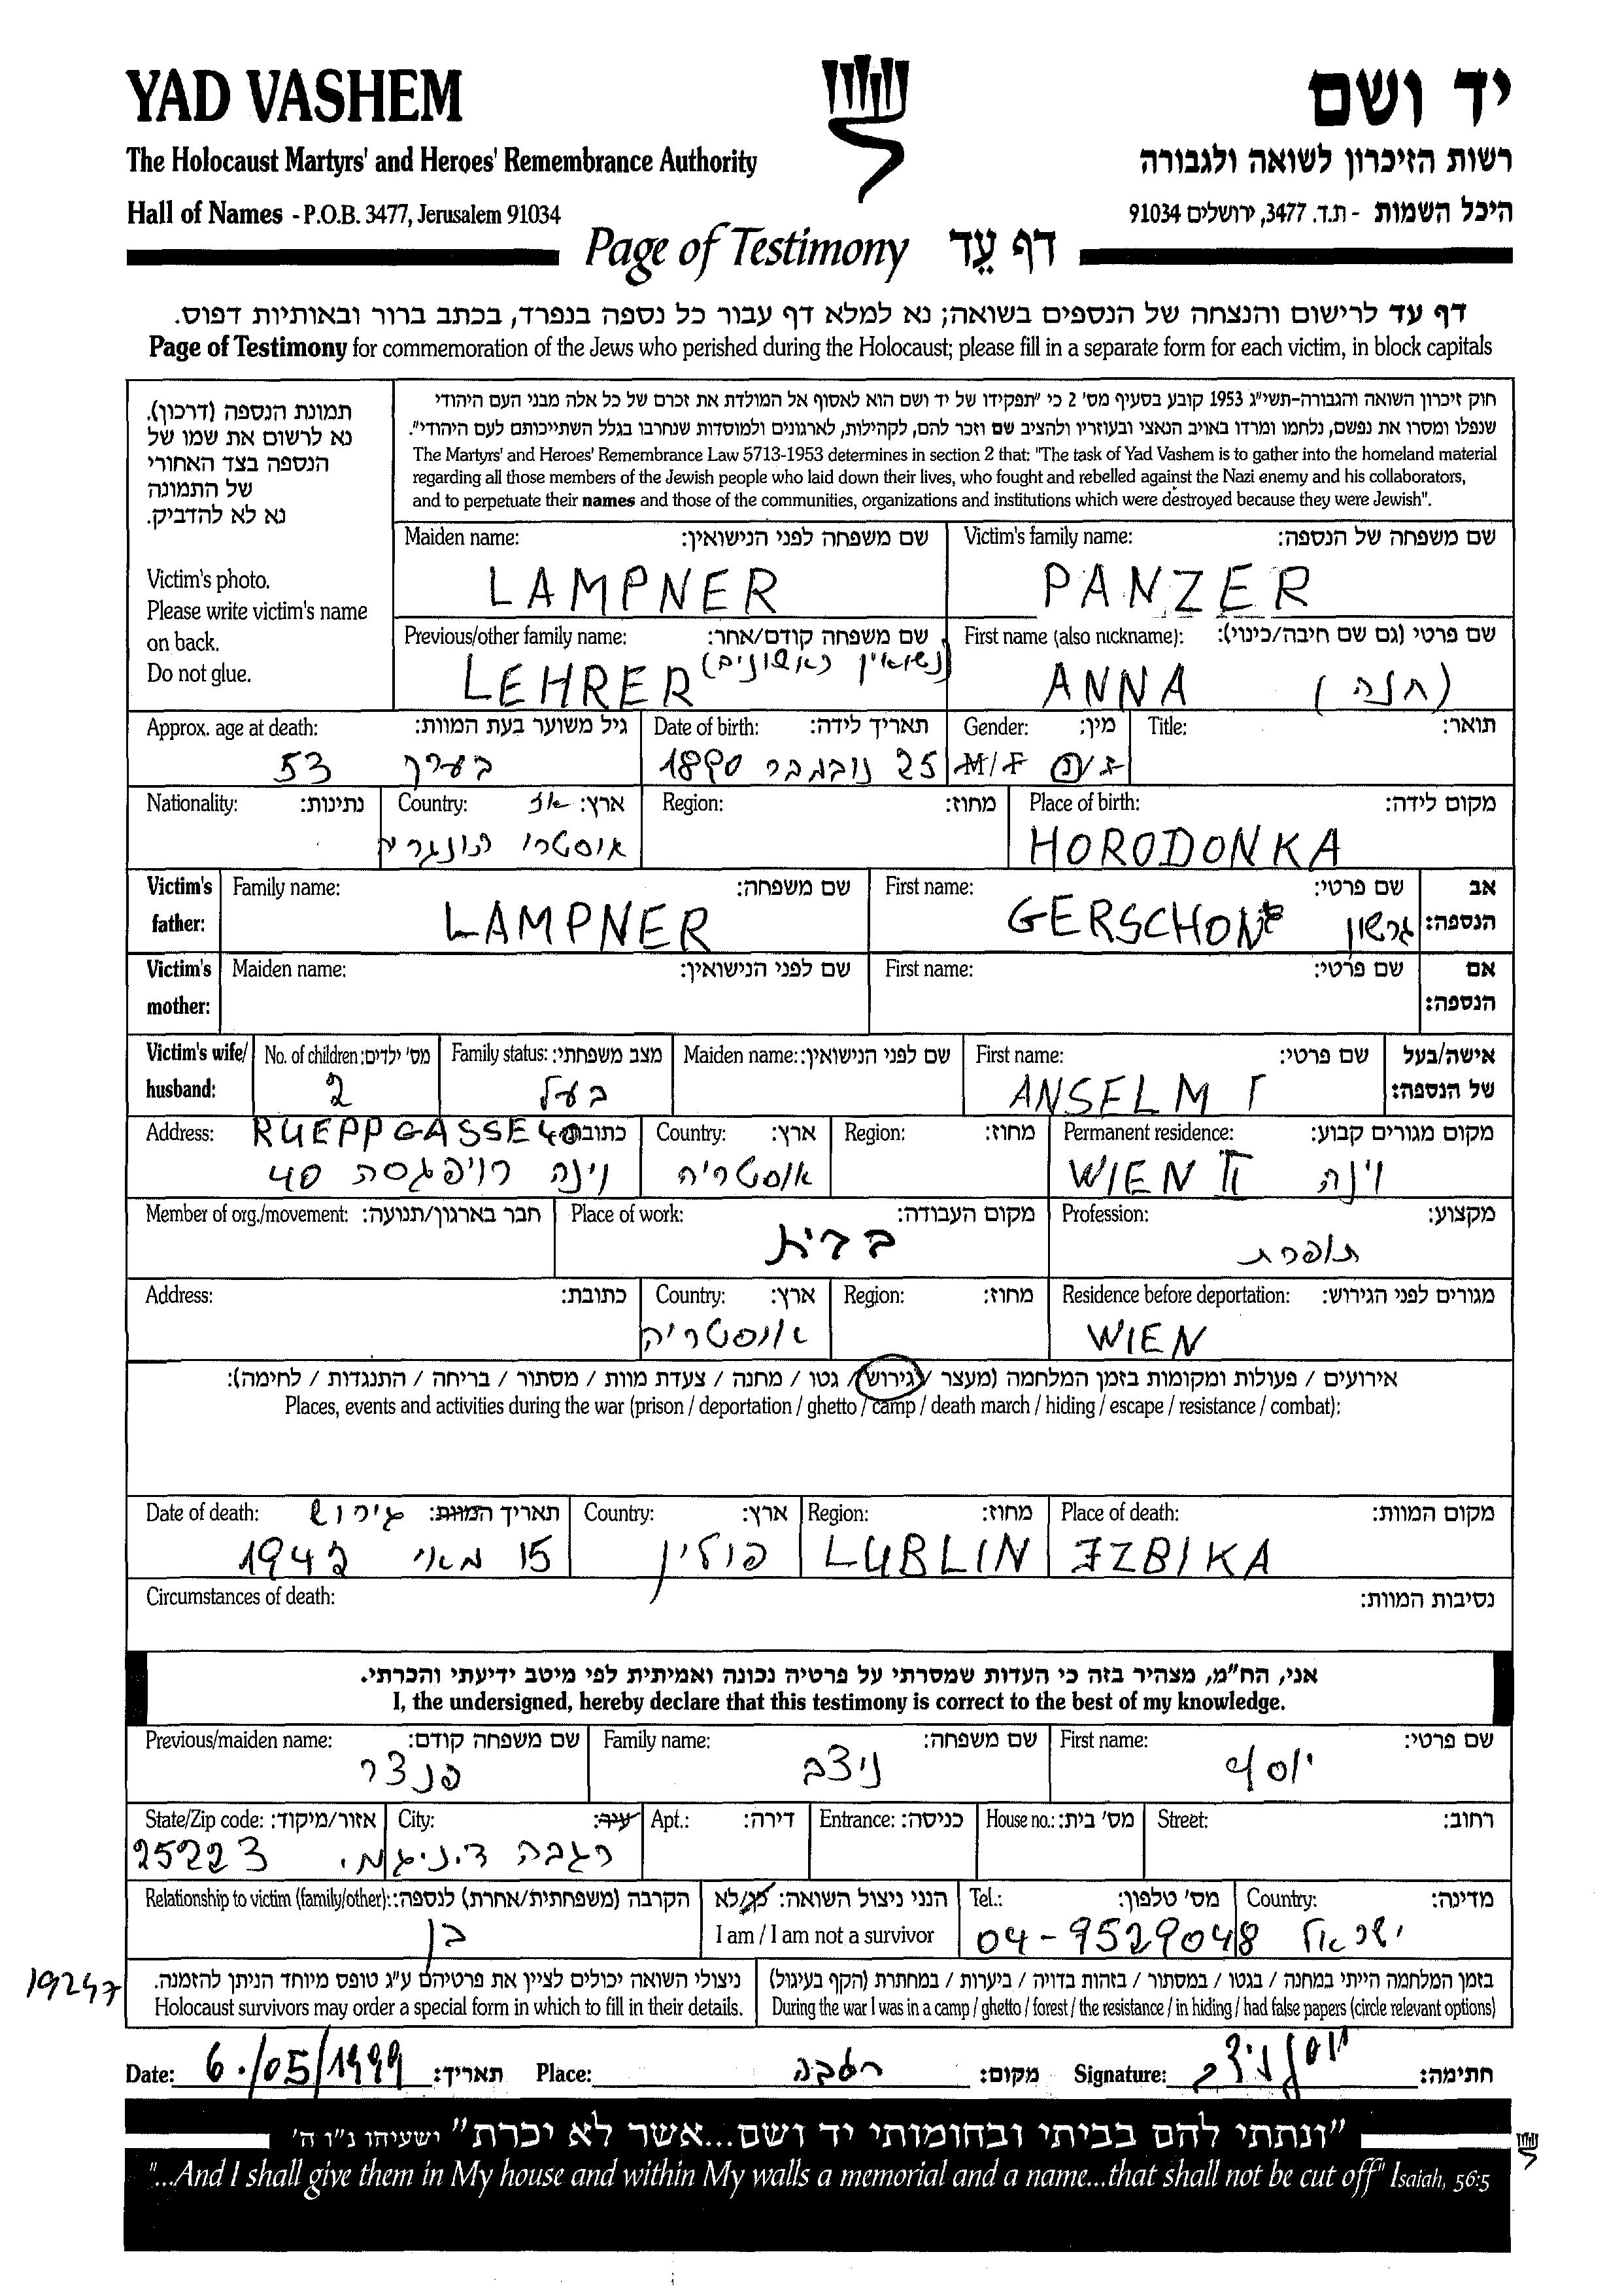 YAD VASHEM
יד ושם
The Holocaust Martyrs' and Heroes' Remembrance Authority
רשות הזיכרון לשואה ולגבורה
Hall of Names - P.O.B. 3477, Jerusalem 91034
היכל השמות - ת.ד. 3477, ירושלים 91034
Page of Testimony דף עֵד
דף עד לרישום והנצחה של הנספים בשואה; נא למלא דף עבור כל נספה בנפרד, בכתב ברור ובאותיות דפוס.
Page of Testimony for commemoration of the Jews who perished during the Holocaust; please fill in a separate form for each victim, in block capitals
תמונת הנספה (דרכון).
נא לרשום את שמו של
הנספה בצד האחורי
של התמונה
נא לא להדביק.
Victim's photo.
Please write victim's name
on back.
Do not glue.
חוק זיכרון השואה והגבורה-תשי"ג 1953 קובע בסעיף מס' 2 כי "תפקידו של יד ושם הוא לאסוף אל המולדת את זכרם של כל אלה מבני העם היהודי
שנפלו ומסרו את נפשם, נלחמו ומרדו באויב הנאצי ובעוזריו ולהציב שם וזכר להם, לקהילות, לארגונים ולמוסדות שנחרבו בגלל השתייכותם לעם היהודי".
The Martyrs' and Heroes' Remembrance Law 5713-1953 determines in section 2 that: "The task of Yad Vashem is to gather into the homeland material
regarding all those members of the Jewish people who laid down their lives, who fought and rebelled against the Nazi enemy and his collaborators,
and to perpetuate their names and those of the communities, organizations and institutions which were destroyed because they were Jewish".
Maiden name: שם משפחה לפני הנישואין:
LAMPNER
Victim's family name: שם משפחה של הנספה:
PANZER
Previous/other family name: שם משפחה קודם/אחר:
LEHRER (נשואין ראשונים)
First name (also nickname): שם פרטי (גם שם חיבה/כינוי):
ANNA (חנה)
Approx. age at death: גיל משוער בעת המוות:
בערך 53
Date of birth: תאריך לידה:
25 נובמבר 1890
Gender: מין:
M/F ז/נ
Title: תואר:
Nationality: נתינות:
Country: ארץ: אז
אוסטרו הונגריה
Region: מחוז:
Place of birth: מקום לידה:
HORODONKA
Victim's father: אב הנספה:
Family name: שם משפחה:
LAMPNER
First name: שם פרטי:
GERSCHON גרשון
Victim's mother: אם הנספה:
Maiden name: שם לפני הנישואין:
First name: שם פרטי:
Victim's wife/ husband: אישה/בעל של הנספה:
No. of children: מס' ילדים:
2
Family status: מצב משפחתי:
בעל
Maiden name: שם לפני הנישואין:
First name: שם פרטי:
ANSELM
Address: כתובת:
RUEPPGASSE 40
וינה רויפגסה 40
Country: ארץ:
אוסטריה
Region: מחוז:
Permanent residence: מקום מגורים קבוע:
WIEN II וינה
Member of org./movement: חבר בארגון/תנועה:
Place of work: מקום העבודה:
בבית
Profession: מקצוע:
תופרת
Address: כתובת:
Country: ארץ:
אוסטריה
Region: מחוז:
Residence before deportation: מגורים לפני הגירוש:
WIEN
אירועים / פעולות ומקומות בזמן המלחמה (מעצר / גירוש / גטו / מחנה / צעדת מוות / מסתור / בריחה / התנגדות / לחימה):
Places, events and activities during the war (prison / deportation / ghetto / camp / death march / hiding / escape / resistance / combat):
Date of death: תאריך המוות: גירוש
15 מאי 1942
Country: ארץ:
פולין
Region: מחוז:
LUBLIN
Place of death: מקום המוות:
IZBIKA
Circumstances of death: נסיבות המוות:
אני, הח"מ, מצהיר בזה כי העדות שמסרתי על פרטיה נכונה ואמיתית לפי מיטב ידיעתי והכרתי.
I, the undersigned, hereby declare that this testimony is correct to the best of my knowledge.
Previous/maiden name: שם משפחה קודם:
פנצר
Family name: שם משפחה:
ניצב
First name: שם פרטי:
יוסף
State/Zip code: אזור/מיקוד:
25223
City: עיר:
רגבה ד.נ.
Apt.: דירה:
Entrance: כניסה:
House no.: מס' בית:
Street: רחוב:
Relationship to victim (family/other): הקרבה (משפחתית/אחרת) לנספה:
בן
הנני ניצול השואה: כן/לא
I am / I am not a survivor
Tel.: מס' טלפון:
04-9529048
Country: מדינה:
ישראל
19247
ניצולי השואה יכולים לציין את פרטיהם ע"ג טופס מיוחד הניתן להזמנה.
Holocaust survivors may order a special form in which to fill in their details.
בזמן המלחמה הייתי במחנה / בגטו / במסתור / בזהות בדויה / ביערות / במחתרת (הקף בעיגול)
During the war I was in a camp / ghetto / forest / the resistance / in hiding / had false papers (circle relevant options)
Date: 6./05/1999 תאריך: Place: רגבה מקום: Signature: יוסף ניצב חתימה:
"ונתתי להם בביתי ובחומותי יד ושם...אשר לא יכרת" ישעיהו נ"ו ה'
"...And I shall give them in My house and within My walls a memorial and a name...that shall not be cut off" Isaiah, 56:5